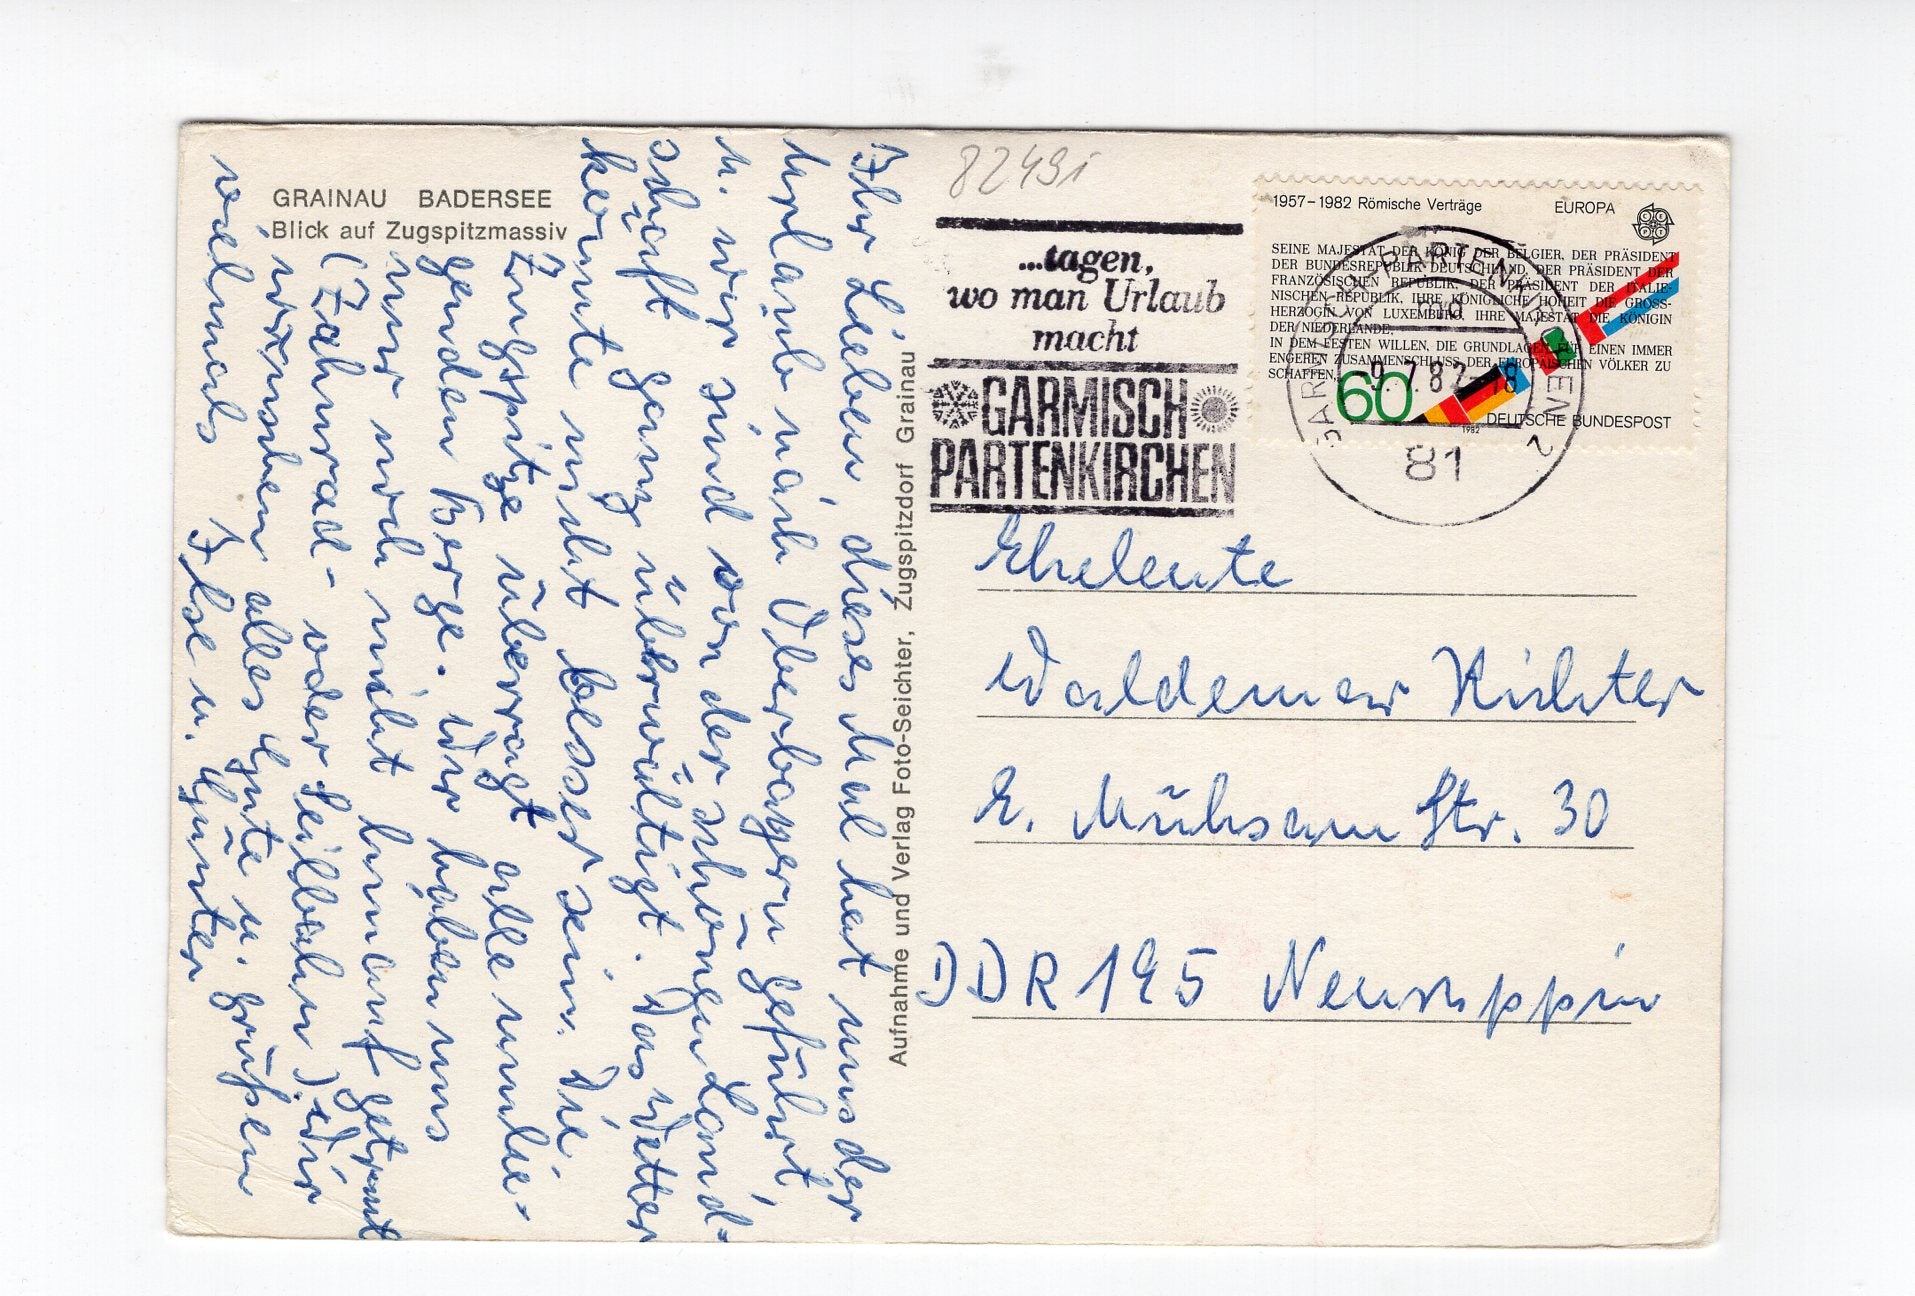 GRAINAU BADERSEE
Blick auf Zugspitzmassiv
Ihr Lieben dieses Mal hat uns der
Urlaub nach Oberbayern geführt
u. wir sind von der schönen Land-
schaft ganz überwältigt. Das Wetter
könnte nicht besser sein. Die
Zugspitze überragt alle umlie-
genden Berge. Wir haben uns
nur noch nicht hinauf getraut
(Zahnrad- oder Seilbahn). Wir
wünschen alles Gute u. grüßen
vielmals Ilse u. Günter
Aufnahme und Verlag Foto-Seichter, Zugspitzdorf Grainau
82491
...tagen,
wo man Urlaub
macht
GARMISCH
PARTENKIRCHEN
1957–1982 Römische Verträge EUROPA
CEPT
SEINE MAJESTÄT DER KÖNIG DER BELGIER, DER PRÄSIDENT
DER BUNDESREPUBLIK DEUTSCHLAND, DER PRÄSIDENT DER
FRANZÖSISCHEN REPUBLIK, DER PRÄSIDENT DER ITALIE-
NISCHEN REPUBLIK, IHRE KÖNIGLICHE HOHEIT DIE GROSS-
HERZOGIN VON LUXEMBURG, IHRE MAJESTÄT DIE KÖNIGIN
DER NIEDERLANDE,
IN DEM FESTEN WILLEN, DIE GRUNDLAGEN FÜR EINEN IMMER
ENGEREN ZUSAMMENSCHLUSS DER EUROPÄISCHEN VÖLKER ZU
SCHAFFEN,
60
DEUTSCHE BUNDESPOST
1982
GARMISCH-PARTENKIRCHEN 2
md
-9.7.82-18
81
Eheleute
Waldemar Richter
E. Mühsam Str. 30
DDR 195 Neuruppin